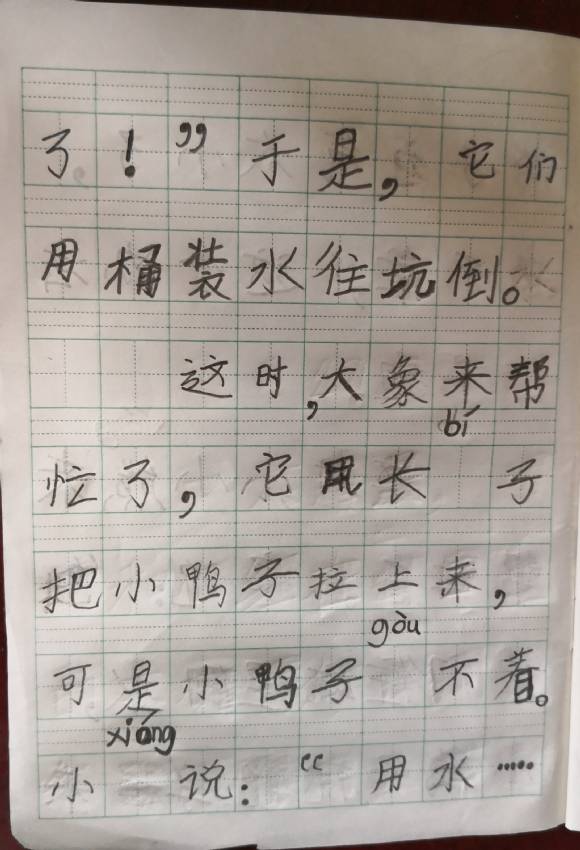 了！”于是，它们
用桶装水往坑倒。
这时，大象来帮
bí
忙了，它用长 子
把小鸭子拉上来，
gòu
可是小鸭子 不着。
xiǎng
小 说：“用水……